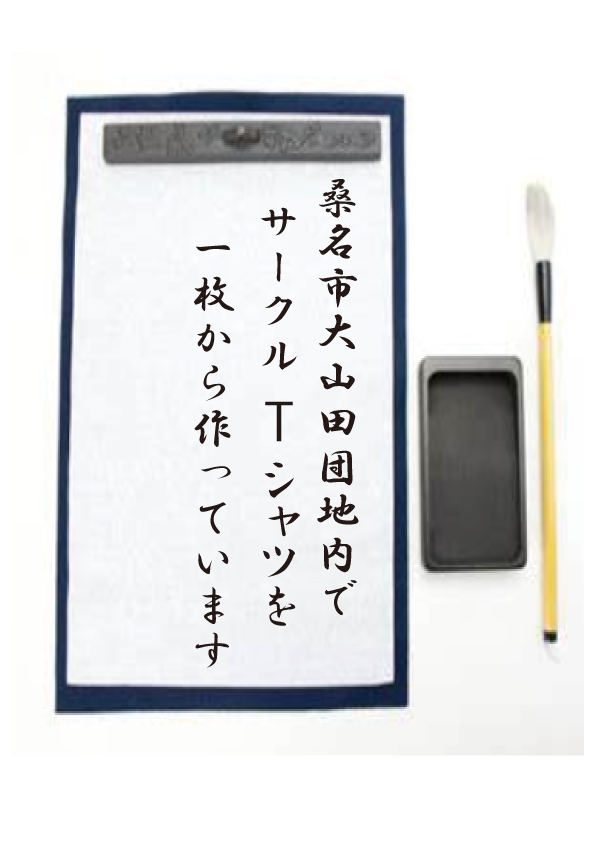 桑名市大山田団地内で
サークルTシャツを
一枚から作っています